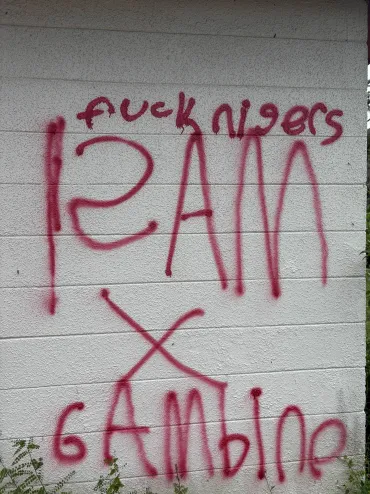 fuck nigers
RAM
X
GAmbIne